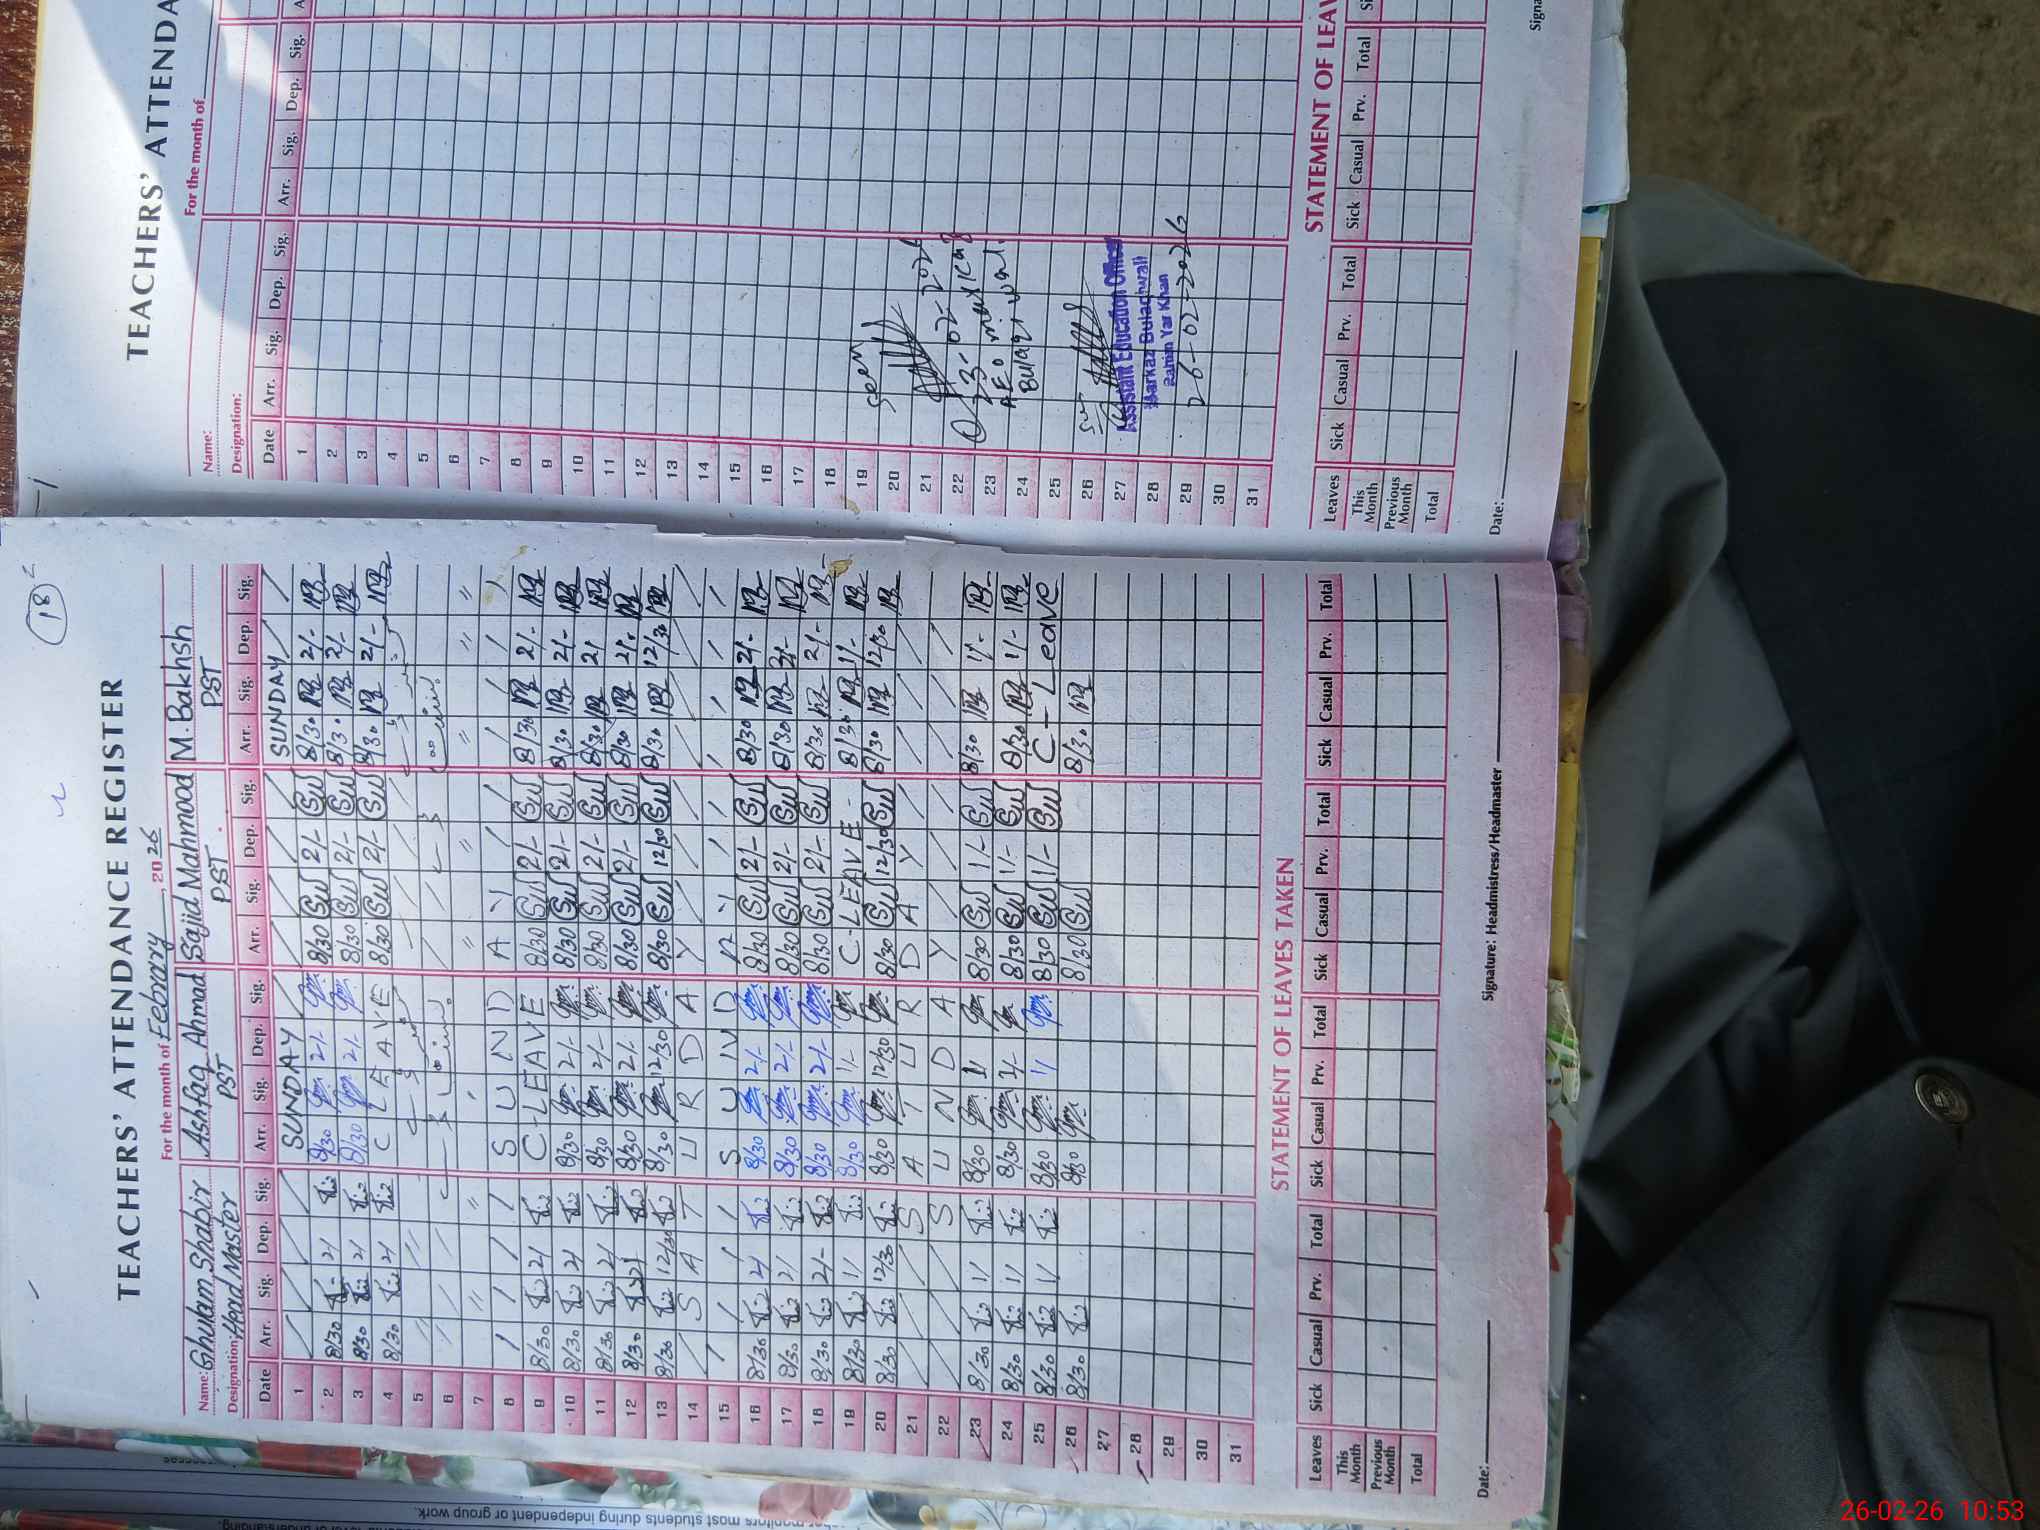 TEACHERS' ATTENDANCE REGISTER
For the month of February, 2026
Name: Ghulam Shabir Ashfaq Ahmad Sajid Mahmood M. Bakhsh
Designation: Head Master PST PST PST
Date Arr. Sig. Dep. Sig. Arr. Sig. Dep. Sig. Arr. Sig. Dep. Sig. Arr. Sig. Dep. Sig.
1 SUNDAY SUNDAY
2 8/30 2/ 8/30 2/- 8/30 2/- 8/30 2/-
3 8/30 2/ 8/30 2/- 8/30 2/- 8/30 2/-
4 8/30 2/ C LEAVE 8/30 2/- 8/30 2/-
5
6
7
8 S U N D A Y
9 8/30 2/ C-LEAVE 8/30 2/- 8/30 2/-
10 8/30 2/ 8/30 2/- 8/30 2/- 8/30 2/-
11 8/30 2/ 8/30 2/- 8/30 2/- 8/30 2/
12 8/30 2/ 8/30 2/- 8/30 2/- 8/30 2/-
13 8/30 12/30 8/30 12/30 8/30 12/30 8/30 12/30
14 S A T U R D A Y
15 S U N D A Y
16 8/30 2/ 8/30 2/- 8/30 2/- 8/30 2/-
17 8/30 2/ 8/30 2/- 8/30 2/- 8/30 2/-
18 8/30 2/- 8/30 2/- 8/30 2/- 8/30 2/-
19 8/30 1/ 8/30 1/- C-LEAVE- 8/30 1/-
20 8/30 12/30 8/30 12/30 8/30 12/30 8/30 12/30
21 S A T U R D A Y
22 S U N D A Y
23 8/30 1/ 8/30 1/ 8/30 1/- 8/30 1/-
24 8/30 1/ 8/30 8/30 1/- 8/30 1/-
25 8/30 1/ 8/30 1/ 8/30 1/- C-Leave
26 8/30 8/30 8/30 8/30
27
28
29
30
31
STATEMENT OF LEAVES TAKEN
Leaves Sick Casual Prv. Total Sick Casual Prv. Total Sick Casual Prv. Total Sick Casual Prv. Total
This Month
Previous Month
Total
Date: Signature: Headmistress/Headmaster
18
TEACHERS' ATTENDA
For the month of
Name:
Designation:
Date Arr. Sig. Dep. Sig. Arr. Sig. Dep. Sig.
1
2
3
4
5
6
7
8
9
10
11
12
13
14
15
16
17
18
19
20
21
22
23
24
25
26
27
28
29
30
31
Seen
23-02-2026
AEO markaz
Assistant Education Officer
Markaz Bulaqiwali
Rahim Yar Khan
26-02-2026
STATEMENT OF LEAV
Leaves Sick Casual Prv. Total Sick Casual Prv. Total
This Month
Previous Month
Total
Date:
Signa
most students during independent or group work.
26-02-26 10:53